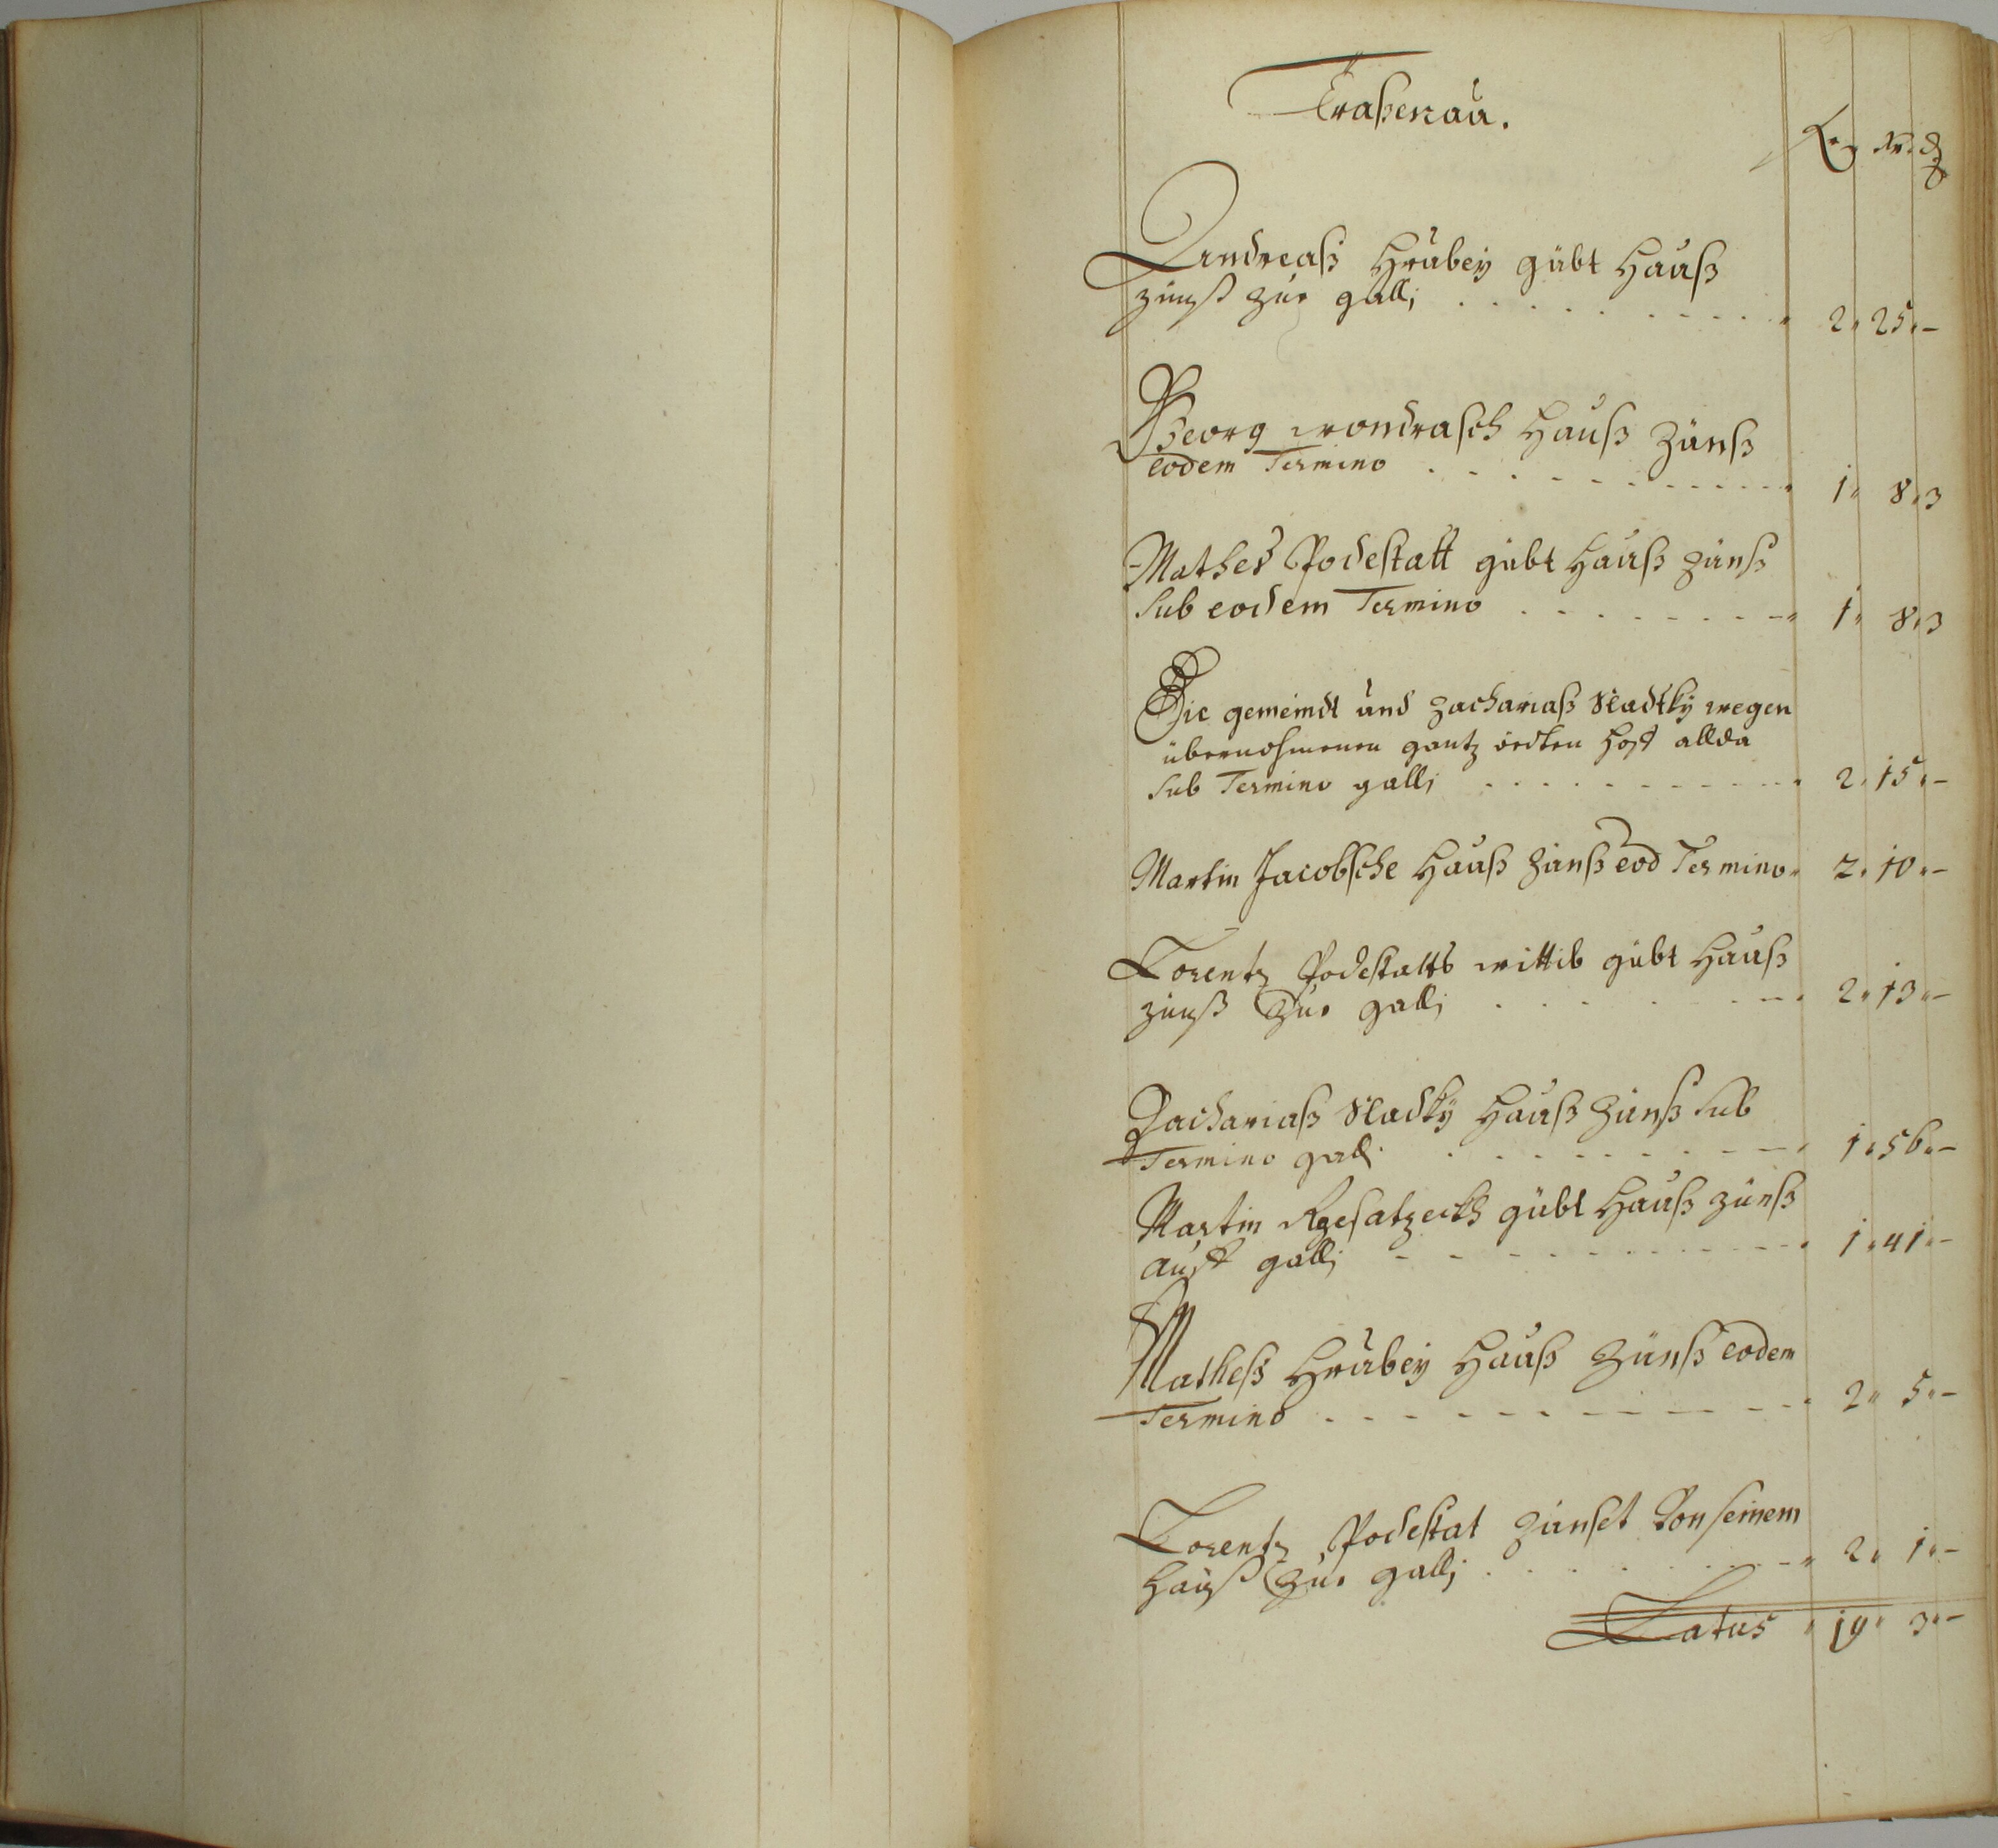 Traßenau.
fl. Kr. d
Andreaß Hrubey gübt Hauß
zünß zur galli . . . . . . . . . . 2 " 25 " –
Georg wondrasch Hauß Zünß
eodem Termino . . . . . . . . . . 1 " 8 " 3
Mathes Podestatt gübt Hauß zünß
Sub eodem Termino . . . . . . . . . . 1 " 8 " 3
Die gemeindt und Zachariaß Sladky wegen
übernohmenen gantz öedten Hoff allda
Sub Termino galli . . . . . . . . . . 2 " 15 " –
Martin Jacobsche Hauß Zünß eod Termino " 2 " 10 " –
Lorentz Podestatts wittib gübt Hauß
zünß Zur galli . . . . . . . . . . 2 " 13 " –
Zachariaß Sladky Hauß Zünß Sub
Termino galli . . . . . . . . . . 1 " 56 " –
Martin gübt Hauß zünß
auff galli . . . . . . . . . . 1 " 41 " –
Matheß Hrubey Hauß Zünß eodem
Termino . . . . . . . . . . 2 " 5 " –
Lorentz Podestat Zünset Von seinem
Hauß Zur galli . . . . . . . . . . 2 " 1 " –
Latus " 19 " 3 " –